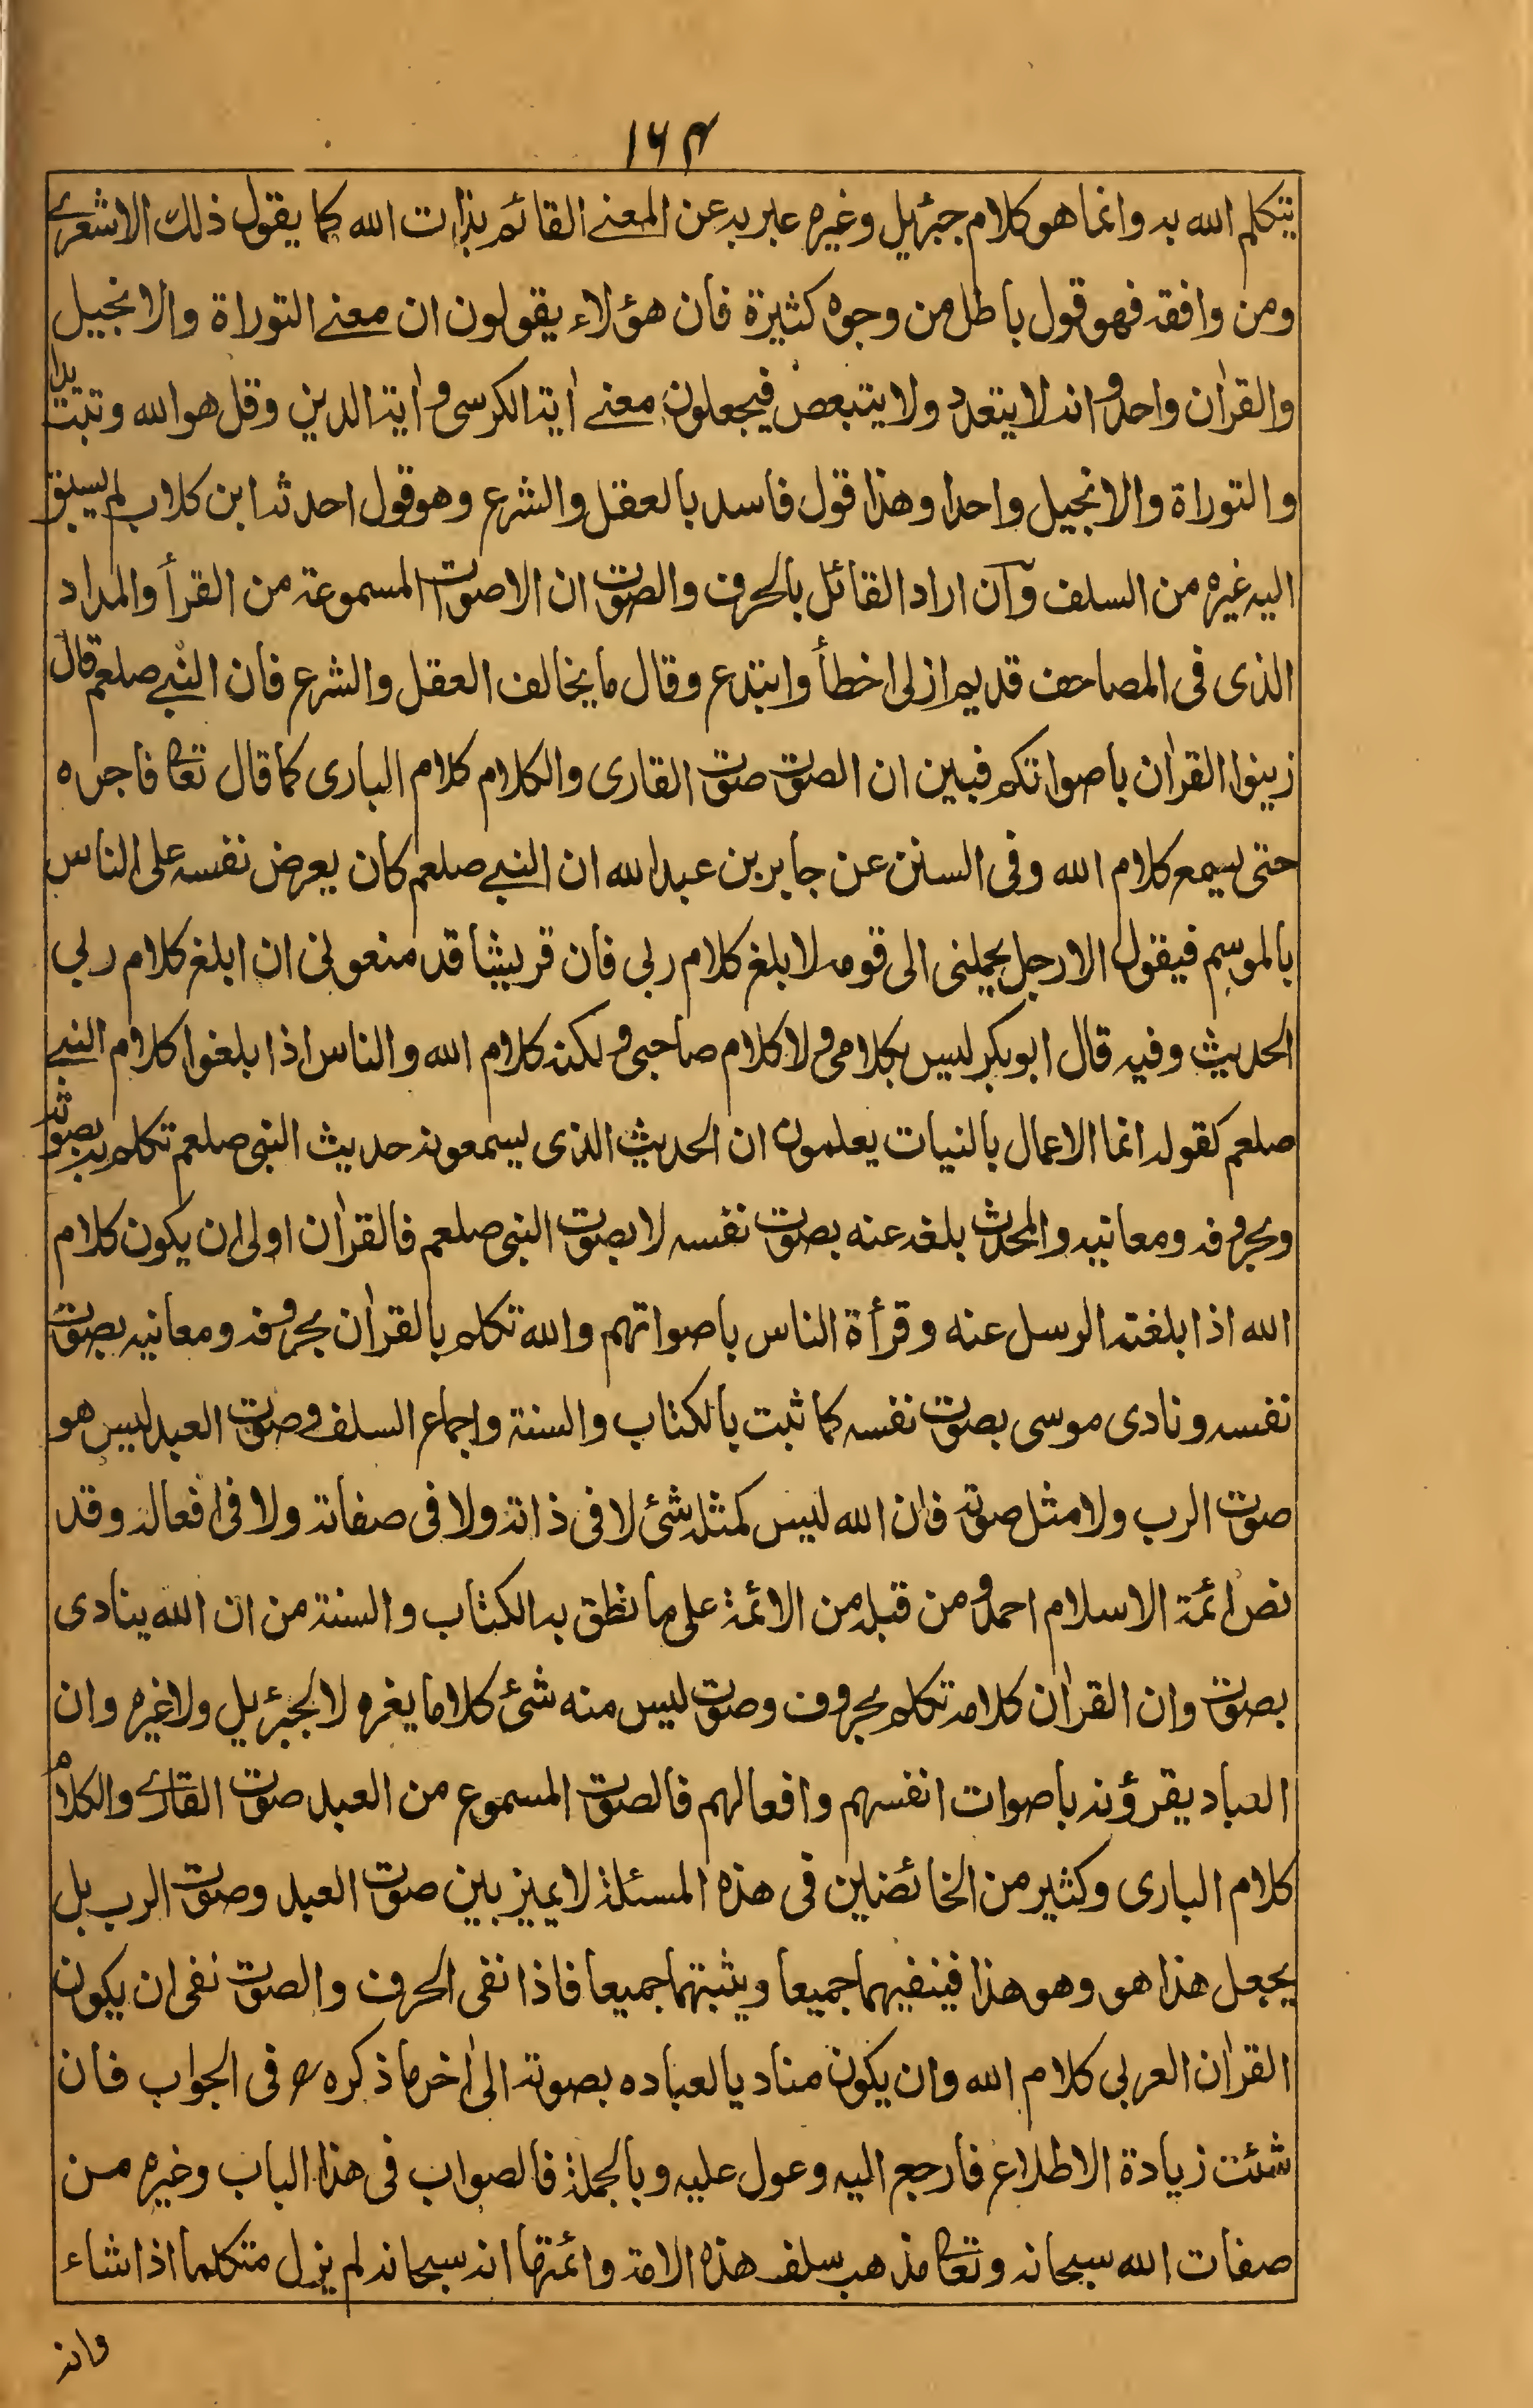 ۱۶۴
يتكلم الله به وانما هو كلام جبرئيل وغيره عبر به عن المعنے القائم بذات الله كما يقول ذلك الاشعرے
ومن وافقه فهو قول باطل من وجوه كثيرة فان هؤلاء يقولون ان معنے التوراة والانجيل
والقراٰن واحد وانه لا يتعدد ولا يتبعض فيجعلون معنے اٰية الكرسى واٰية الدين وقل هو الله وتبت يدا
والتوراة والانجيل واحدا وهذا قول فاسد بالعقل والشرع وهو قول احدثه ابن كلاب لم يسبق
اليه غيره من السلف وآن اراد القائل بالحرف والصوت ان الاصوات المسموعة من القرأ والمداد
الذى فى المصاحف قديم ازلى اخطأ وابتدع وقال ما يخالف العقل والشرع فان النبے صلعم قال
زينوا القراٰن باصواتكم فبين ان الصوت صوت القارى والكلام كلام البارى كما قال تعا فاجره
حتى يسمع كلام الله وفى السنن عن جابر بن عبد الله ان النبے صلعم كان يعرض نفسه على الناس
بالموسم فيقول الا رجل يحملنى الى قومه لابلغ كلام ربى فان قريشا قد منعونى ان ابلغ كلام ربى
الحديث وفيه قال ابو بكر ليس بكلامى ولا كلام صاحبى ولكنه كلام الله والناس اذا بلغوا كلام النبے
صلعم كقوله انما الاعمال بالنيات يعلمون ان الحديث الذى يسمعونه حديث النبى صلعم تكلم به بصوته
وبحروفه ومعانيه والمحدث بلغه عنه بصوت نفسه لا بصوت النبى صلعم فالقراٰن اولى ان يكون كلام
الله اذا بلغته الرسل عنه وقرأة الناس باصواتهم والله تكلم بالقراٰن بحروفه ومعانيه بصوت
نفسه ونادى موسى بصوت نفسه كما ثبت بالكتاب والسنة واجماع السلف وصوت العبد ليس هو
صوت الرب ولا مثل صوته فان الله ليس كمثله شئ لا فى ذاته ولا فى صفاته ولا فى افعاله وقد
نص ائمة الاسلام احمد ومن قبله من الائمة على ما نطق به الكتاب والسنة من ان الله ينادى
بصوت وان القراٰن كلامه تكلم بحروف وصوت ليس منه شئ كلاما يغره لا لجبرئيل ولا غيره وان
العباد يقرؤنه باصوات انفسهم وافعالهم فالصوت المسموع من العبد صوت القارے والكلام
كلام البارى وكثير من الخائضين فى هذه المسئلة لا يميز بين صوت العبد وصوت الرب بل
يجعل هذا هو وهو هذا فينفيهما جميعا ويثبتهما جميعا فاذا نفى الحرف والصوت نفى ان يكون
القراٰن العربى كلام الله وان يكون مناديا لعباده بصوته الى اٰخر ما ذكره رح فى الجواب فان
شئت زيادة الاطلاع فارجع اليه وعول عليه وبالجملة فالصواب فى هذا الباب وغيره من
صفات الله سبحانه وتعا مذهب سلف هذه الامة وائمتها انه سبحانه لم يزل متكلما اذا شاء
وانه